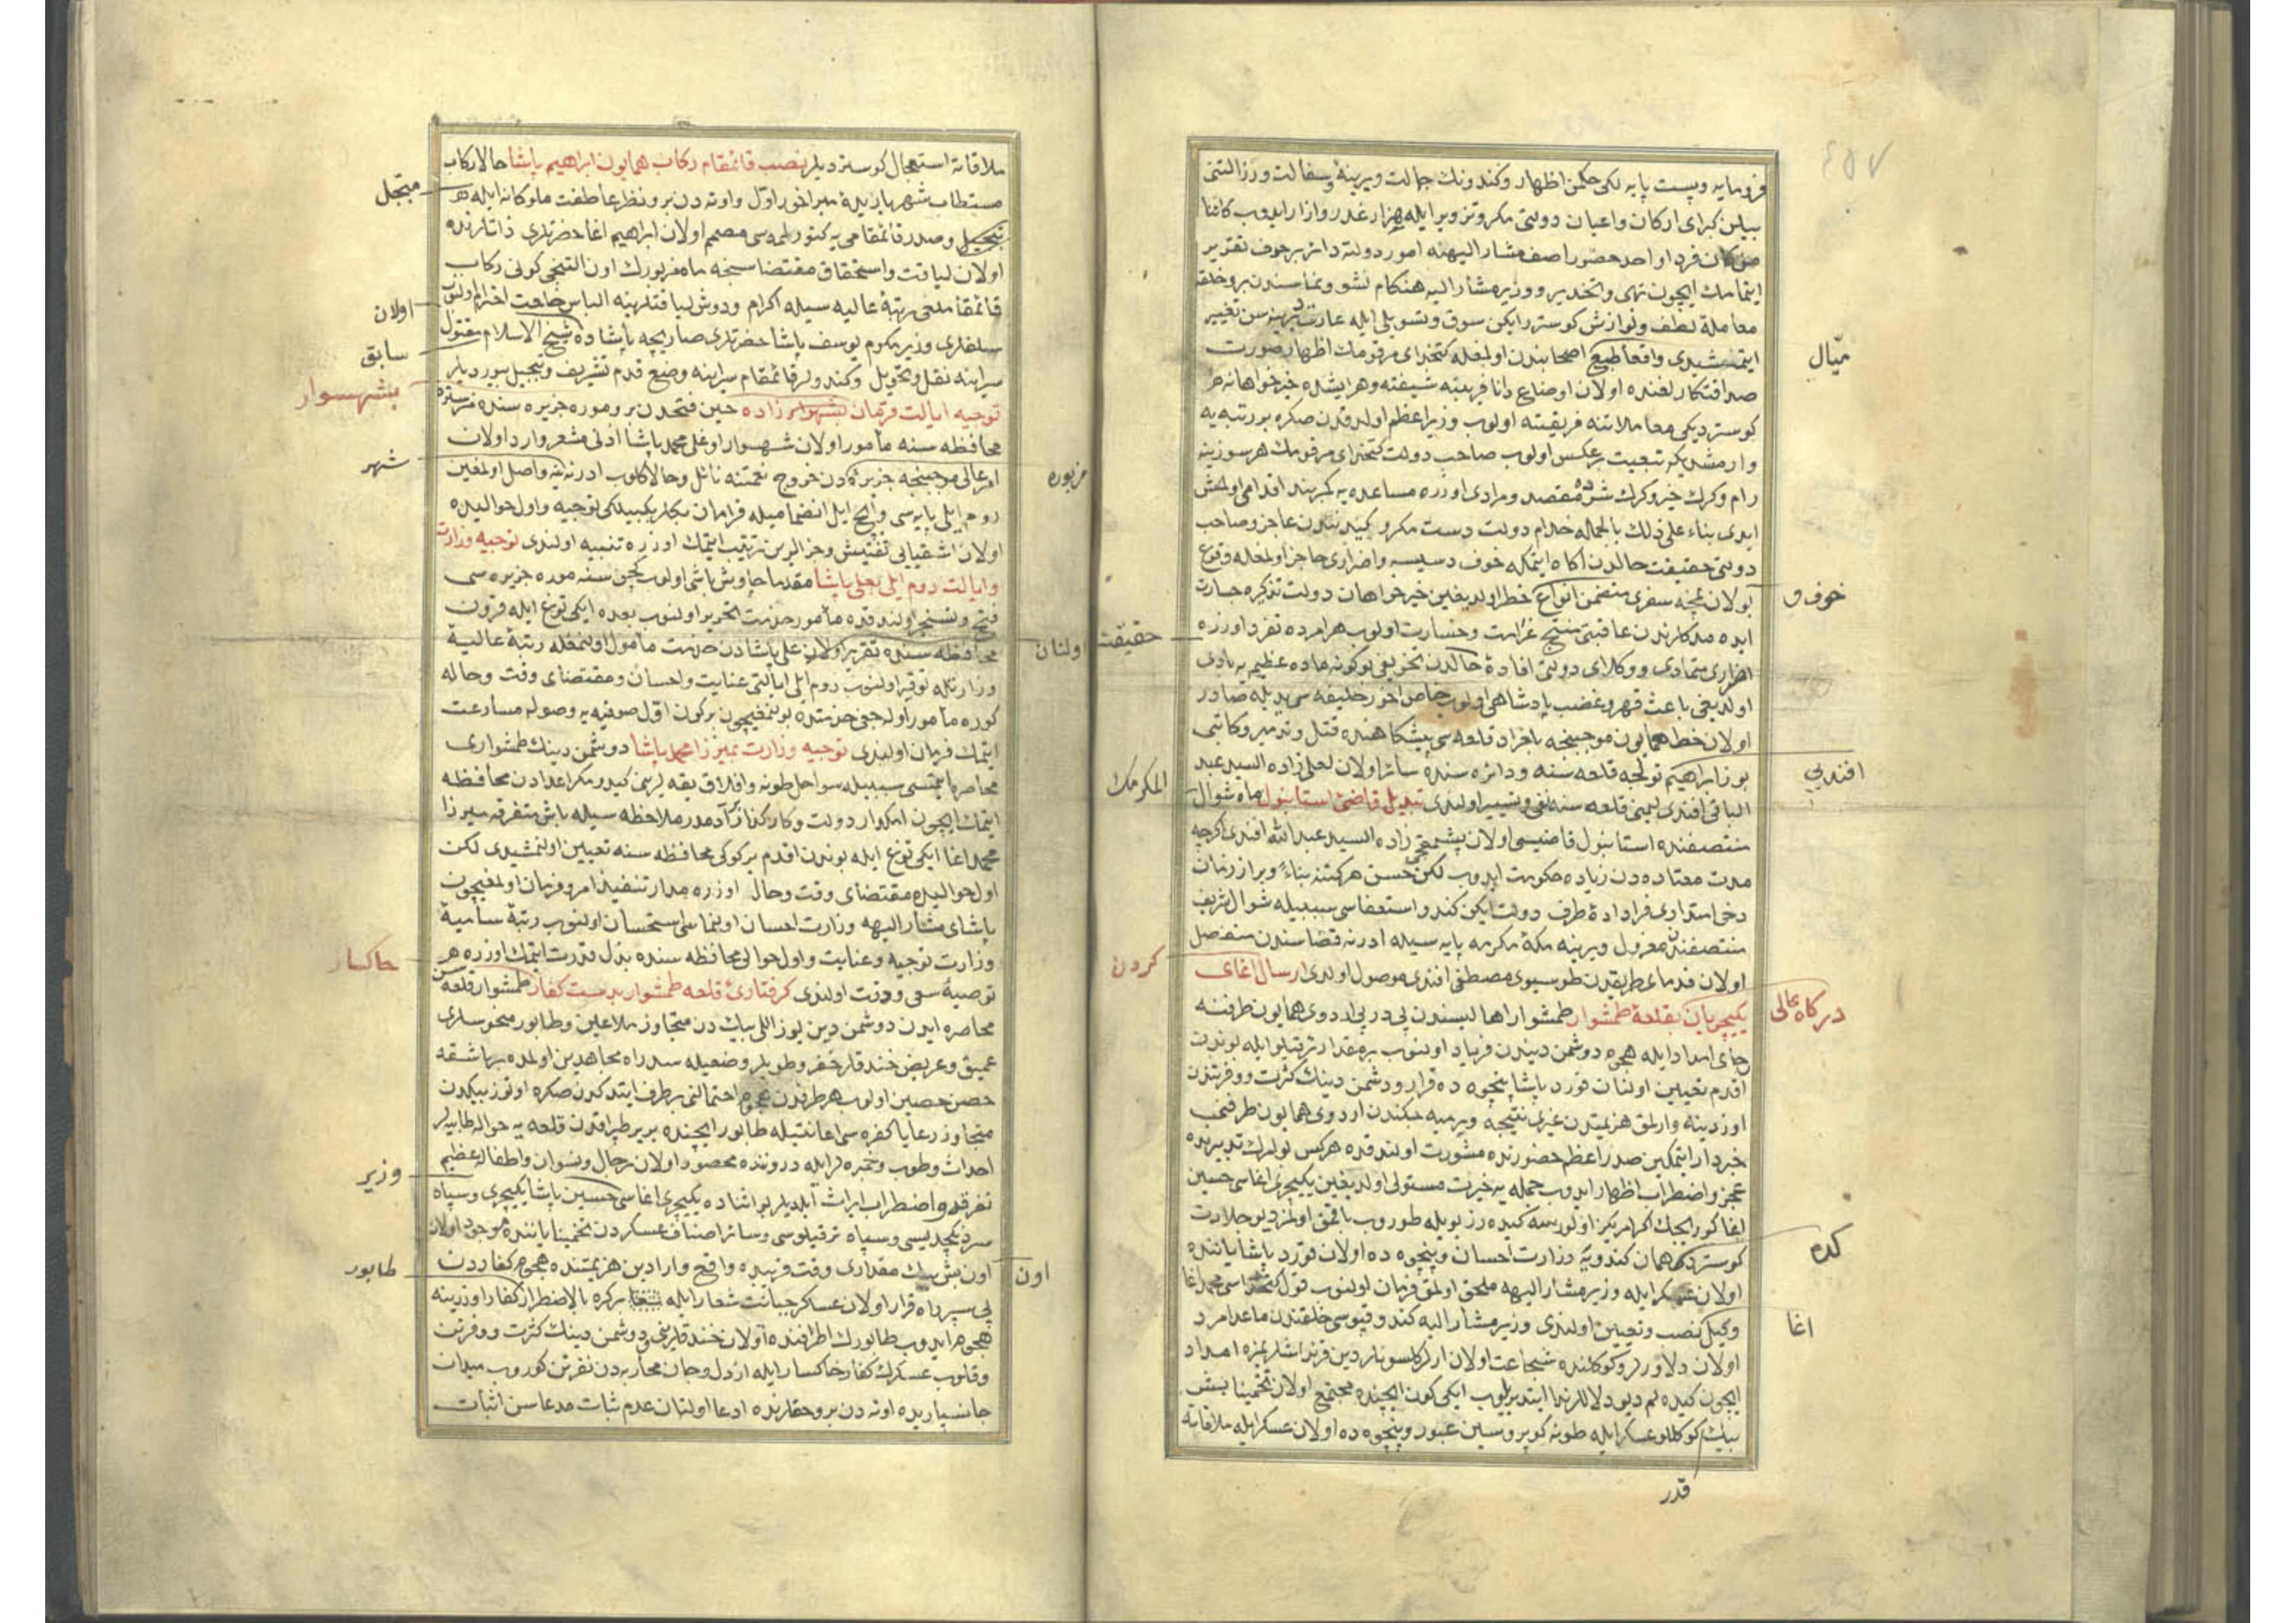 فرومایه وپست پایه لکی حکمن اظهار وکندونك جهالت ودیرینهٔ وسفالت ورزالتنی
بیلن کبرای ارکان واعیان دولتی مکر وتزویر ایله هزار غدر وازار ایدوب کائنا
من کان فرد واحد حضور اصف مشار الیهنه امور دولته دائر بر حرف تقریر
ایتمامك ایچون نهی وتحذیر ووزیر مشار الیه هنکام نشو ونماسندن برو خلقه
معاملهٔ لطف ونوازش کوستررایکن سوق وتسویلی ایله عادت دیرینه سن تغییر
ایتمشیدی واقعا طبیع اصحابندن اولمغله کتخدای مرقومك اظهار صورت
میّال
صداقتکارلغنده اولان اوضاع دانا فریبنه شیفته وهر ایشده خیرخواهانه
کوستردیکی معاملاتنه فریفته اولوب وزیر اعظم اولدقدن صکره بو رتبه یه
وارمشدیکه تبعیت برعکس اولوب صاحب دولت کتخدای مرقومك هر سوزینه
رام وکرك خیر وکرك شرده مقصد ومرادی اوزره مساعده یه کمربند اقدام اولمش
ایدی بناء علی ذلك بالجمله خدام دولت دست مکر وکیدندن عاجز وصاحب
دولتی حقیقت حالدن اکاه ایتمکه خوف دسیسه واضراری حاجز اولمغله وقوع
بولان نمچه سفری متضمن انواع خطر اولدیغین خیرخواهان دولت تذکره جسارت
خوف و
ایده مدکلرندن عاقبتی منتج غرامت وخسارت اولوب هرامرده تفرد اوزره
حقیقت
اضراری متمادی ووکلای دولتی افادهٔ حالدن تخویفی بو کونه مادهٔ عظیمه یه بادی
اولدیغی باعث قهر وغضب پادشاهی اولوب خاص اخور خلیفه سی یدیله صادر
اولان خط همایون موجبنجه بلغراد قلعه سی پیشکاهنده قتل وتدمیر وکاتبی
بوز ابراهیم تولجه قلعه سنه ودائره سنده سائر اولان لعلی زاده السید عبد
افندیی
الباقی افندی لیمنی قلعه سنه نفی وتسییر اولندی تبدیل قاضئ استانبول ماه شوال
المکرمك
منتصفنده استانبول قاضیسی اولان پشمقجی زاده السید عبد الله افندی اکرچه
مدت معتاده دن زیاده حکومت ایدوب لکن حسن حرکتنه بناءً وبر از زمان
دخی استمراری فراداهٔ طرف دولت ایکن کندو استعفاسی سببیله شوال شریف
منتصفندن معزول ویرینه مکهٔ مکرمه پایه سیله ادرنه قضاسندن منفصل
اولان قدمای طریقدن طوسیوی مصطفی افندی موصول اولدی ارسال اغای
کردن
یکیچریان بقلعهٔ طمشوار طمشوار اهالیسندن پی در پی اردوی همایون طرفنه
درکاه عالی
رجای امداد ایله هجوم دوشمن دیندن فریاد اولنوب بر مقدار ترقیلو ایله بوندن
اقدم تعیین اولنان قورد پاشا پنچوه ده قرار ودشمن دینك کثرت ووفرتندن
اوزدینه وارلمق هزیمتدن غیری نتیجه ویرمیه جکندن اردوی همایون طرفنی
خبردار ایتمکین صدر اعظم حضورنده مشورت اولندقده هرکس بو امرك تدبیرنده
عجز واضطراب اظهار ایدوب جمله یه خیرت مستولی اولدیغین یکیچری اغاسی حسین
اغا کوریجك اکر امریکز اولورسه کیده رز بویله طوروب باقمق اولمز دیو جلادت
کوستردکه همان کندویه وزارت احسان وپنچوه ده اولان قورد پاشا یاننده
کدم
اولان عسکر ایله وزیر مشار الیهه ملحق اولمق فرمان اولنوب قول کتخداسی محمد اغا
وکیل نصب وتعیین اولندی وزیر مشار الیه کندو قپوسی خلقندن ماعدا مرد
اغا
اولان دلاورلر وکوکلنده شجاعت اولان ارلر کلسونلر دین قرنداشلریمزه امداد
ایچون کیده لم دیو دلاللر ندا ایتدیریلوب ایکی کون ایچنده مجتمع اولان تخمینا بش
بیك کوکللو عسکر ایله طونه کوپروسین عبور وپنچوه ده اولان عسکر ایله ملاقاته
قدر
ملاقاته استعجال کوستردیلر نصب قائمقام رکاب همایون ابراهیم پاشا حالا رکاب
مستطاب شهریاریده میر اخور اوّل واوته دن برو نظر عاطفت ملوکانه ایله هر
متبجل
تبجیل وصدر قائمقامی یه کتورلمه سی مصمم اولان ابراهیم اغا حضرتلری ذاتلرنده
اولان لیاقت واستحقاق مقتضاسنجه ماه مزبورك اون التنجی کونی رکاب
قائمقاملغی رتبهٔ عالیه سیله اکرام ودوش لیاقتلرینه الباس خلعت احترام اولنوب
اولان
سلفلری وزیر مکرم یوسف پاشا حضرتلری صاریچه پاشاده شیخ الاسلام مقتول
سابق
سراینه نقل وتحویل وکندولر قائمقام سراینه وضع قدم تشریف وتبجیل بیوردیلر
بشهسوار
توجیه ایالت قرمان بشهوار زاده حین فتحدن برو موره جزیره سنده منستره
محافظه سنه مأمور اولان شهسوار اوغلی محمد پاشا اذنی مشعر وارد اولان
شهر
امر عالی موجبنجه جزیره دن خروج نعمتنه نائل وحالا کلوب ادرنه یه واصل اولمغین
مزبوره
روم ایلی پایه سی وایچ ایل انضمامیله قرامان بکلربکیلکی توجیه واول حوالیده
اولان اشقیایی تفتیش وجزالرین ترتیب ایتمك اوزره تنبیه اولندی توجیه وزارت
وایالت روم ایلی بعلی پاشا مقدما چاوش باشی اولوب کچن سنه موره جزیره سی
فتح وتسخیر اولندقده مأمور خدمت تحریر اولنوب بعده ایکی توغ ایله قرون
محافظه سنده تقریر اولان علی پاشادن خدمت مأمول اولنمغله رتبهٔ عالیهٔ
اولنان
وزارتله توقیر اولنوب روم ایلی ایالتی عنایت واحسان ومقتضای وقت وحاله
کوره مأمور اوله جغی خدمتده بولنمغیچون برکون اوّل صوفیه یه وصوله مسارعت
ایتمك فرمان اولندی توجیه وزارت بمیرزا محمد پاشا دوشمن دینك طمشواری
محاصره ایتمسی سببیله سواحل طونه وافلاق یقه لرینی کید ومکر اعدادن محافظه
ایتمك ایچون امکدار دولت وکارکذار آدمدر ملاحظه سیله باش متفرقه میرزا
محمد اغا ایکی توغ ایله بوندن اقدم یرکوکی محافظه سنه تعیین اولنمشیدی لکن
اول حوالیده مقتضای وقت وحال اوزره مدار تنفیذ امر وفرمان اولمغیچون
پاشای مشار الیهه وزارت احسان اولنماسی استحسان اولنوب رتبهٔ سامیهٔ
وزارت توجیه وعنایت واول حوالی محافظه سنده بذل قدرت ایتمك اوزره هر
خاکسار
توصیهٔ سعی ودقت اولندی کرفتارئ قلعه طمشوار بدست کفار طمشوار قلعه سن
محاصره ایدن دوشمن دین یوز اللی بیك دن متجاوز ملاعین وطابور منحوسلری
عمیق وعریض خندقلر حفر وطوپلر وضعیله سد راه مجاهدین اولمده بر باشقه
حصن حصین اولوب هر طرفدن هجوم احتمالنی برطرف ایتدکدن صکره اوتوز بیکدن
متجاوز رعایا کفره سی اعانتیله طابور ایچنده یریر طپراقدن قلعه یه حواله طابیه لر
احداث وطوب وخمبره لر ایله دروننده محصور اولان رجال ونسوان واطفاله عظیم
تفرقه واضطراب ایراث ایلدیلر بو اثناده یکیچری اغاسی حسین پاشا یکیچری وسپاه
وزیر
سردنکچدیسی وسپاه ترقیلوسی وسائر اصناف عسکردن تخمینا یاننده موجود اولان
اون بش بیك مقداری وقت قریبده واقع وارادین هزیمتنده هجوم کفاردن
اون
طابور
پی سپر راه قرار اولان عساکر جبانت شعار ایله برکره بالاضطرار کفار اوزرینه
هجوم ایدوب طابورك اطرافنده اولان خندقلرینی ودوشمن دینك کثرت ووفرتن
وقلوب عسکرك کفار خاکسار ایله ازدل وجان محاربه دن نفرتن کوروب میدان
جانسپاریده اوته دن برو حقلرنده ادعا اولنان عدم ثبات مدعاسن اثبات